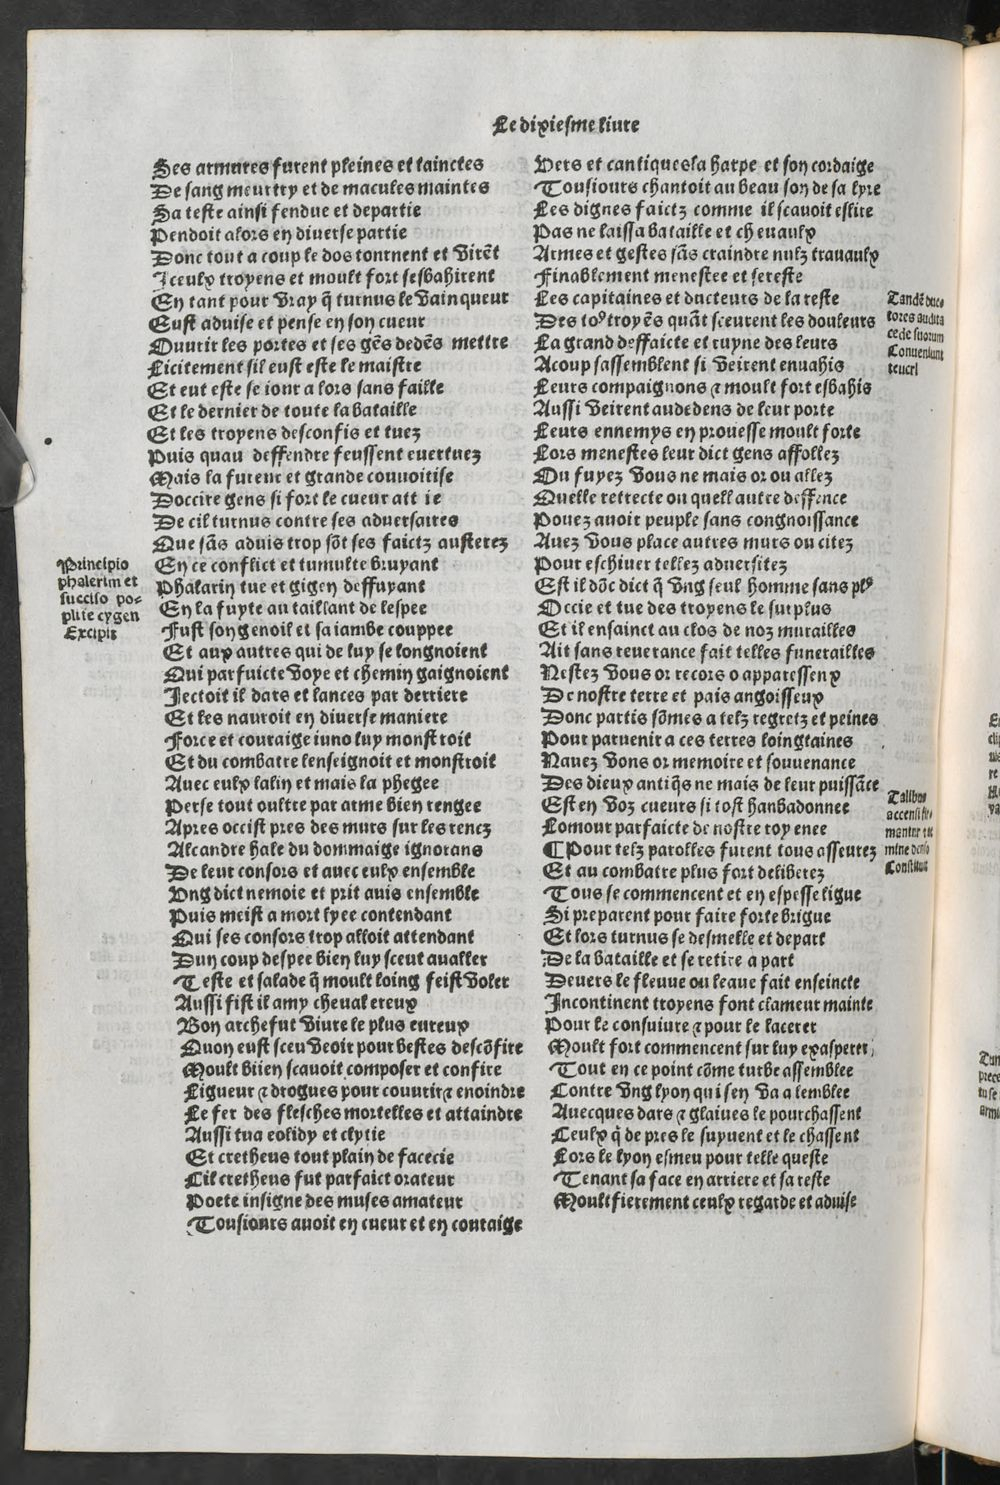 Le dixiesme livre
Ses armures furent pleines et tainctes
De sang meurtry et de macules maintes
Sa teste ainsi fendue et departie
Pendoit alors en diverse partie
Donc tout a coup le dos tornent et virẽt
Iceulx troyens et moult fort sesbahirent
En tant pour vray q̃ turnus le vainqueur
Eust advise et pense en son cueur
Ouvrir les portes et ses gẽs dedẽs mettre
Licitement sil eust este le maistre
Et eut este se iour a lors sans faille
Et le dernier de toute la bataille
Et les troyens desconfis et tuez
Puis quau deffendre feussent evertuez
Mais la fureur et grande couvoitise
Doccire gens si fort le cueur att ie
De cil turnus contre ses adversaires
Que sãs advis trop sõt ses faictz austerez
En ce conflict et tumulte bruyant
Phalarin tue et gigen deffuyant
En la fuyte au taillant de lespee
Fust son genoil et sa iambe couppee
Et aux autres qui de luy se longnoient
Qui par fuicte voye et chemin gaignoient
Iectoit il dars et lances par derriere
Et les navroit en diverse maniere
Force et couraige iuno luy monstroit
Et du combatre lenseignoit et monstroit
Avec eulx lalin et mais la phegee
Perse tout oultre par arme bien rengee
Apres occist pres des murs sur les rencz
Alcandre hale du dommaige ignorans
De leur consors et avec eulx ensemble
Ung dict nemoie et prit avis ensemble
Puis meist a mort lyee contendant
Qui ses consors trop alloit attendant
Dun coup despee bien luy sceut avaller
Teste et salade q̃ moult loing feist voler
Aussi fist il amy chevalereux
Bon archefut vivre le plus eureux
Quon eust sceu veoir pour bestes descõfire
Moult biien scavoit composer et confire
Ligueur ⁊ drogues pour couvrir⁊ enoindre
Le fer des flesches mortelles et attaindre
Aussi tua eolidy et clytie
Et cretheus tout plain de facecie
Cil cretheus fut parfaict orateur
Poete insigne des muses amateur
Tousiours avoit en cueur et en couraige
Principio
phalerim et
succiso po-
plite cygen
Excipit
Vers et cantiques la harpe et son cordaige
Tousiours chantoit au beau son de sa lyre
Les dignes faictz comme il scavoit eslire
Pas ne laissa bataille et chevaulx
Armes et gestes sãs craindre nulz travaulx
Finablement menestee et sereste
Les capitaines et ducteurs de la reste
Des toꝰ troyẽs quãt sceurent les douleurs
La grand deffaicte et ruyne des leurs
Acoup sassemblent si veirent envahis
Leurs compaignons ⁊ moult fort esbahis
Aussi veirent audedens de leur porte
Leurs ennemys en prouesse moult forte
Lors menestes leur dict gens affollez
Ou fuyez vous ne mais or ou allez
Quelle retrecte ou quell autre deffence
Pouez avoir peuple sans congnoissance
Avez vous place autres murs ou citez
Pour eschiver tellez adversitez
Est il dõc dict q̃ ung seul homme sans plꝰ
Occie et tue des troyens le surplus
Et il ensainct au clos de noz murailles
Ait sans reverance fait telles funerailles
Nestez vous or recors o apparesseux
De nostre terre et pais angoisseux
Donc partis sõmes a telz regretz et peines
Pour parvenir a ces terres loingtaines
Navez vous or memoire et souvenance
Des dieux antiq̃s ne mais de leur puissãce
Est en voz cueurs si tost hanbadonnee
Lomour parfaicte de nostre roy enee
¶Pour telz parolles furent tous asseurez
Et au combatre plus fort deliberez
Tous se commencent et en espesse ligue
Si preparent pour faire forte brigue
Et lors turnus se desmelle et depart
De la bataille et se retire a part
Devers le fleuve ou leaue fait enseincte
Incontinent troyens font clameur mainte
Pour le consuivre ⁊ pour le lacerer
Moult fort commencent sur luy exasperer
Tout en ce point cõme turbe assemblee
Contre ung lyon qui sen va a lemblee
Avecques dars ⁊ glaives le pourchassent
Ceulx q̃ de pres le suyvent et le chassent
Lors le lyon esmeu pour telle queste
Tenant sa face en arriere et sa teste
Moult fierement ceulx regarde et advise
Tandẽ duc-
tores audita
cede suorum
Conveniunt
teucri
Talibus
accensi fir-
mantur et ag-
mine denso